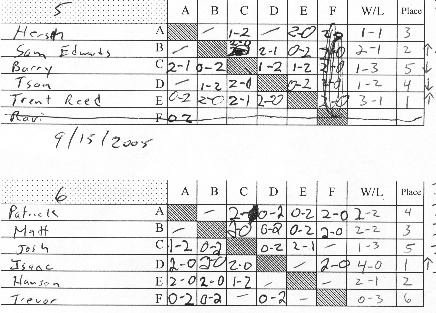 5 A B C D E F W/L Place
Hersh A — 1-2 — 2-0 1-1 3
Sam Edmunds B — 2-1 0-2 2-1 2 ↑
Barry C 2-1 0-2 1-2 1-2 1-3 5 ↓
Tson D — 1-2 2-0 0-2 1-2 4 ↓
Trent Reed E 0-2 2-0 2-1 2-0 3-1 1 ↑
Ravi F 0-2
9/15/2005
6 A B C D E F W/L Place
Patrick A — 0-2 0-2 2-0 2-2 4
Matt B — 0-2 0-2 2-0 2-2 3
Josh C 1-2 0-2 0-2 2-1 — 1-3 5
Isaac D 2-0 2-0 2-0 — 2-0 4-0 1 ↑
Hanson E 2-0 2-0 1-2 — — 2-1 2
Trevor F 0-2 0-2 — 0-2 — 0-3 6